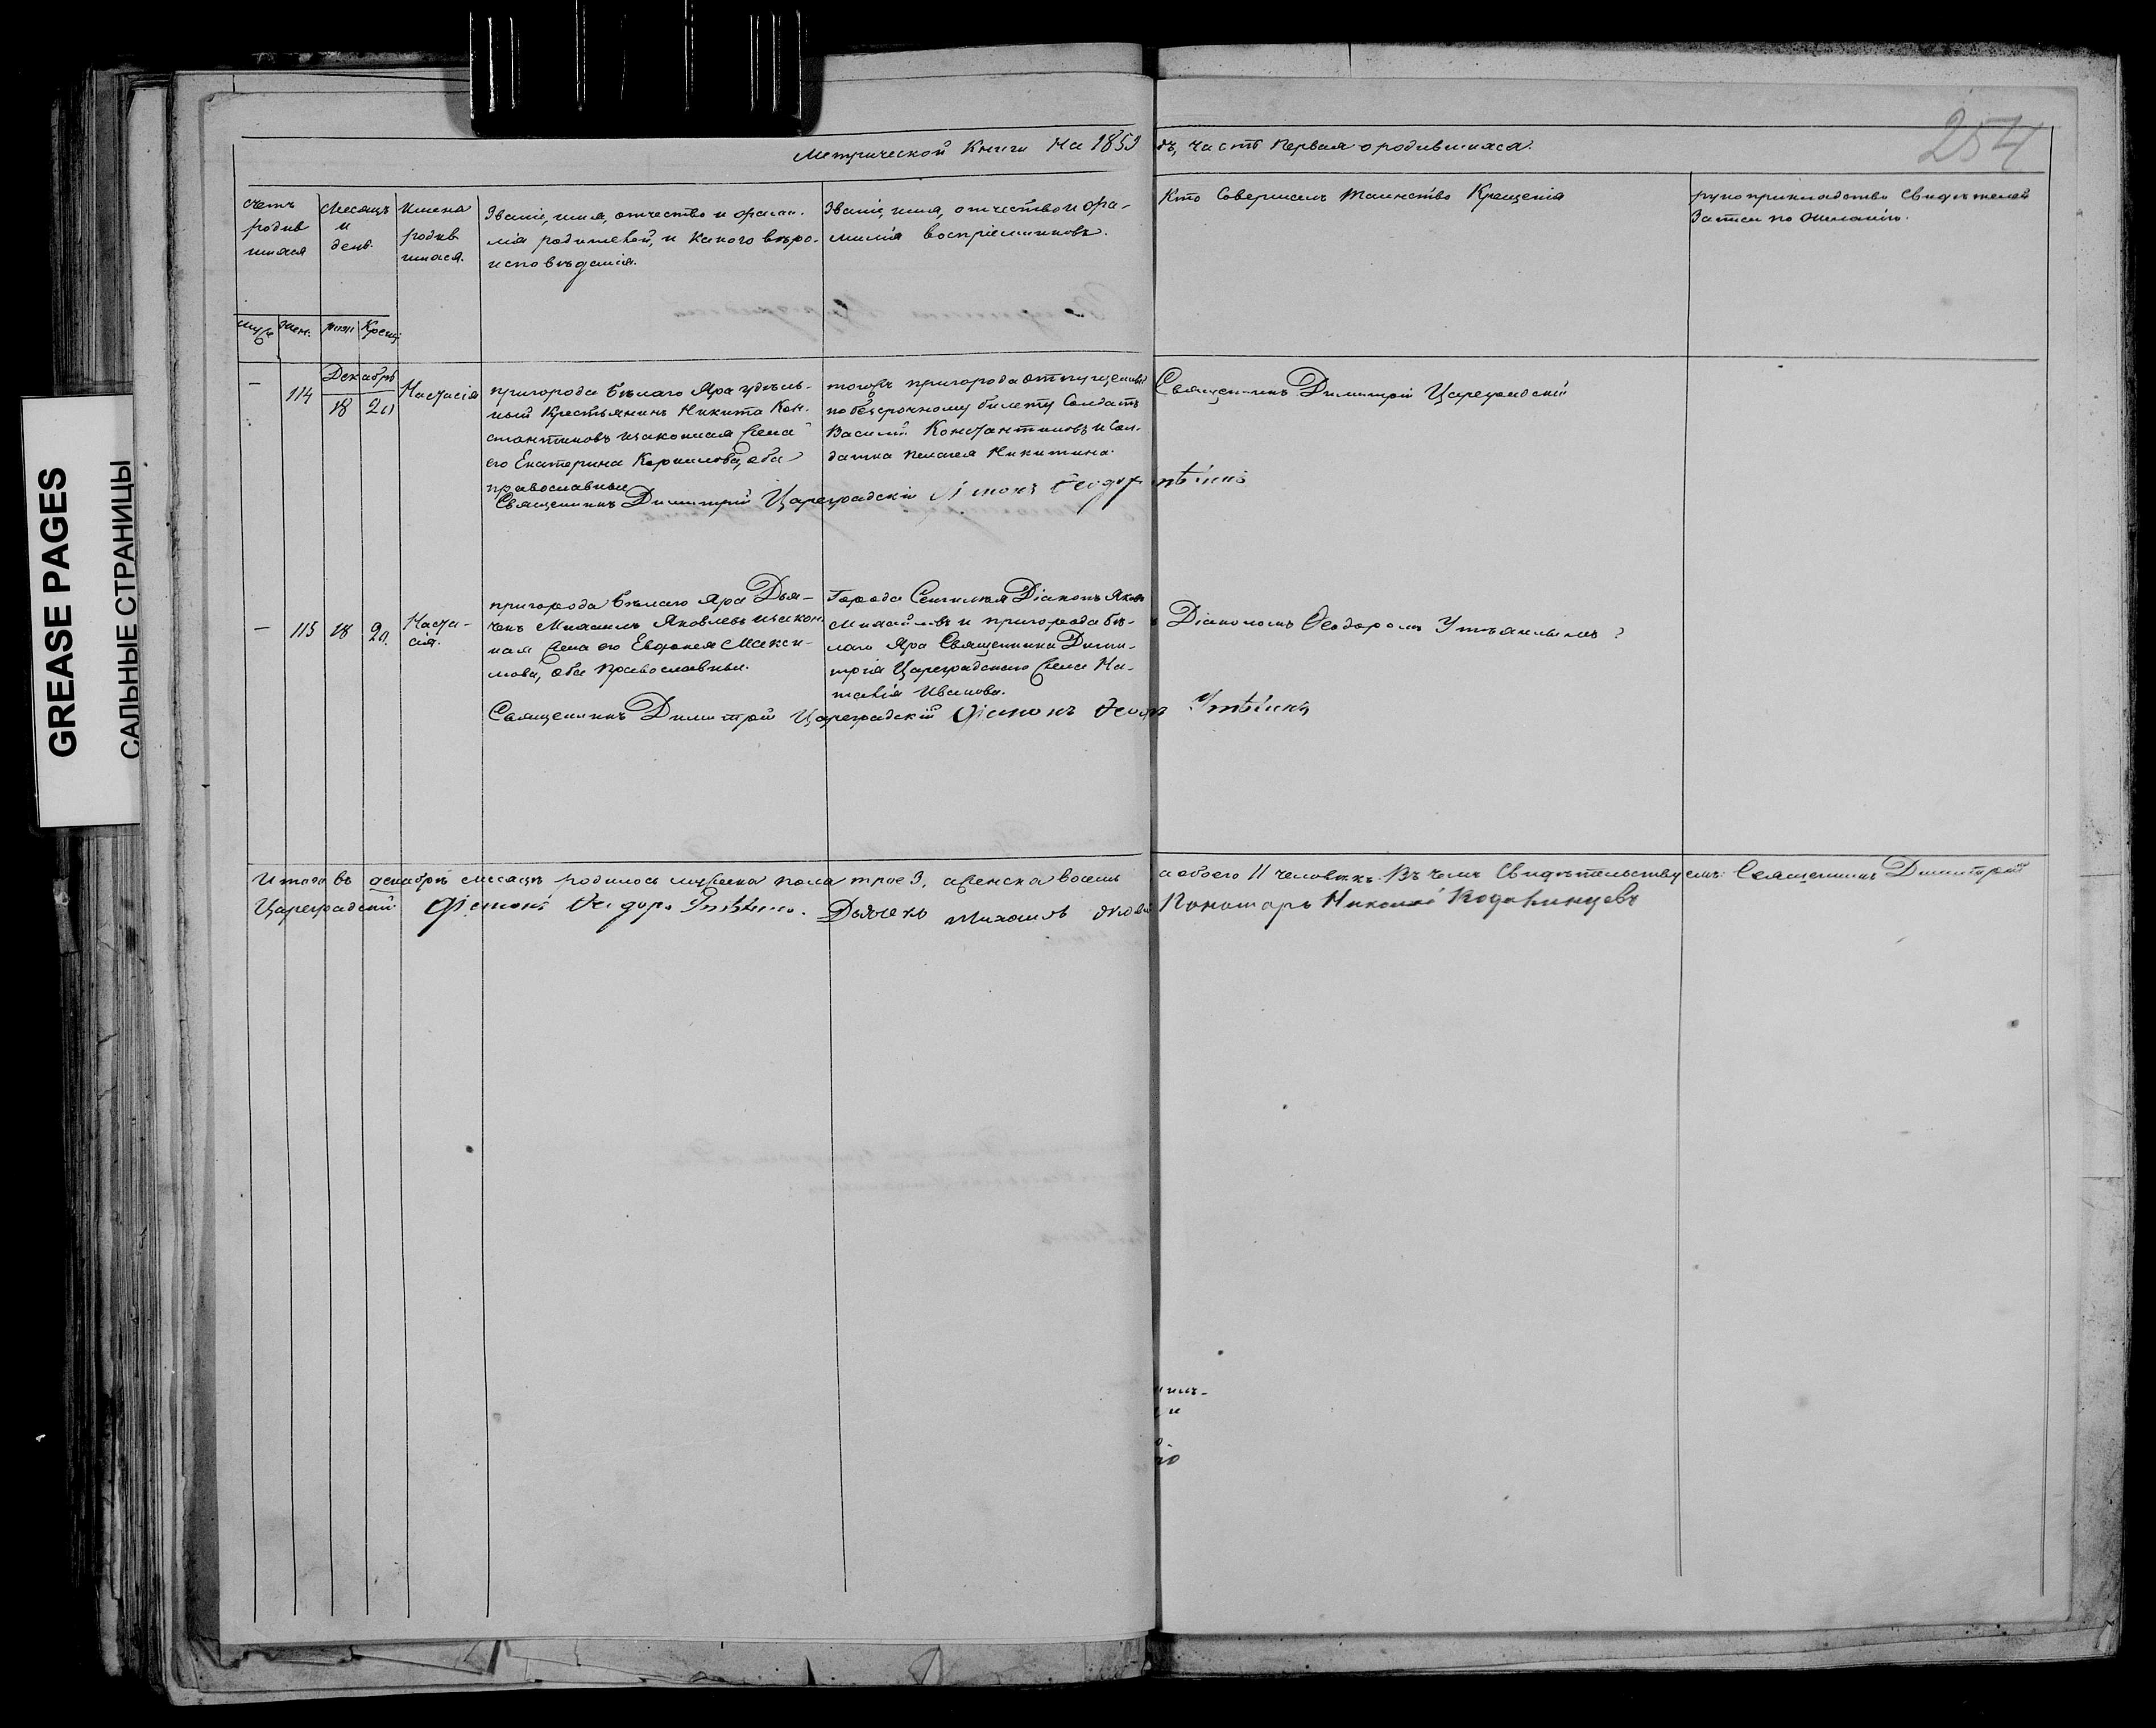 254
Метрической Книги На 1859 дъ, часть Первая о родившихся.
счетъ родив шихся
Месяцъ и день.
Имена родив шихся.
Званіе, имя, отчество и фами-
лія родителей, и какого веро-
исповѣданія.
Званіе, имя, отчество и фа-
милія воспріемниковъ.
Кто Совершилъ Таинство Крещенія
рукоприкладство Свидѣтелей
Записи по желанію.
муж. жен. рожд Крещ.
Декабрь
— 114 18 20 Настасія
пригорода Бѣлаго Яра удѣль-
ный Крестьянинъ Никита Кон-
стантиновъ и законная жена
его Екатерина Корнилова, оба
православные
тогожъ пригорода отпущенный
по безсрочному билету Солдатъ
Василій Константиновъ и Сол-
датка Пелагея Никитина.
Священникъ Димитрій Цареградскій
Священникъ Димитрій Цареградскій
— 115 18 20. Наста-
сія.
пригорода Бѣлаго Яра Дья-
чекъ Михаилъ Яковлевъ и закон
ная жена его Евдокея Макси-
мова, оба Православные.
Города Сенгилея Діаконъ Яковъ
Михайловъ и пригорода Бѣ-
лаго Яра Священника Дими-
трія Цареградскаго жена На-
талія Иванова.
Діакономъ Феодоромъ
Священникъ Димитрій Цареградскій Діаконъ
Итого въ декабрѣ месяцѣ родилось мужеска пола трое 3, а женска восемь а обоего 11 человѣкъ. Въ чемъ Свидѣтельствуемъ: Священникъ Димитрій
Цареградскій Діаконъ Феодоръ Дьячекъ Михаилъ Яковлев Пономарь Николай
GREASE PAGES
САЛЬНЫЕ СТРАНИЦЫ